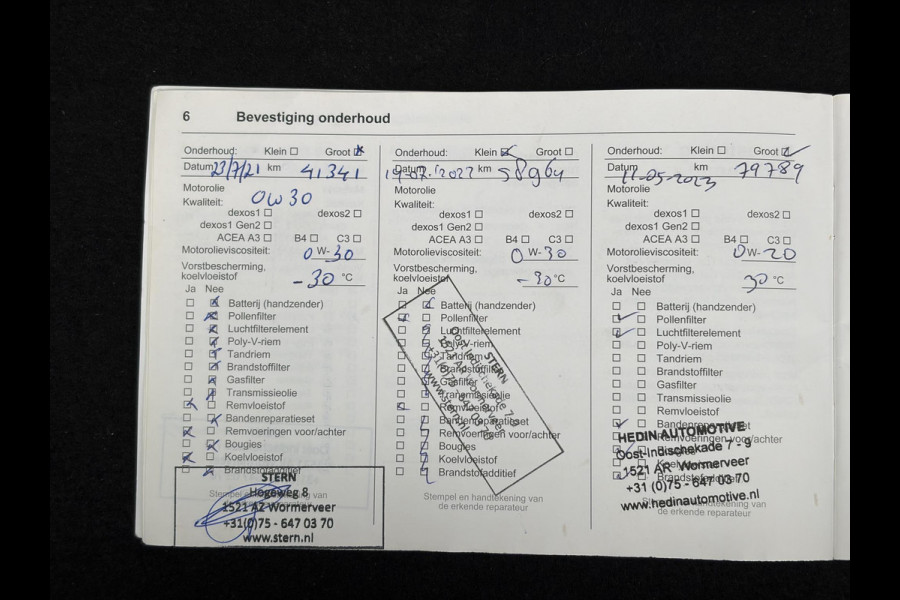 6 Bevestiging onderhoud
Onderhoud: Klein ☐ Groot ☒
Datum 23/7/21 km 41341
Motorolie
Kwaliteit: 0W30
dexos1 ☐ dexos2 ☐
dexos1 Gen2 ☐
ACEA A3 ☐ B4 ☐ C3 ☐
Motorolieviscositeit: 0W-30
Vorstbescherming,
koelvloeistof -30 °C
Ja Nee
Batterij (handzender)
Pollenfilter
Luchtfilterelement
Poly-V-riem
Tandriem
Brandstoffilter
Gasfilter
Transmissieolie
Remvloeistof
Bandenreparatieset
Remvoeringen voor/achter
Bougies
Koelvloeistof
Brandstofadditief
Stempel en handtekening van
STERN
Hogeweg 8
1521 AZ Wormerveer
+31(0)75 - 647 03 70
www.stern.nl
Onderhoud: Klein ☒ Groot ☐
Datum 19-07-2022 km 58964
Motorolie
Kwaliteit:
dexos1 ☐ dexos2 ☐
dexos1 Gen2 ☐
ACEA A3 ☐ B4 ☐ C3 ☐
Motorolieviscositeit: 0W-30
Vorstbescherming,
koelvloeistof °C
Ja Nee
Batterij (handzender)
Pollenfilter
Luchtfilterelement
Poly-V-riem
Tandriem
Brandstoffilter
Gasfilter
Transmissieolie
Remvloeistof
Bandenreparatieset
Remvoeringen voor/achter
Bougies
Koelvloeistof
Brandstofadditief
STERN
Oost-Indischekade 7-9
Wormerveer
+31(0)75 - 647 03 70
www.stern.nl
Stempel en handtekening van
de erkende reparateur
Onderhoud: Klein ☐ Groot ☑
Datum 17-05-2023 km 79789
Motorolie
Kwaliteit:
dexos1 ☐ dexos2 ☐
dexos1 Gen2 ☐
ACEA A3 ☐ B4 ☐ C3 ☐
Motorolieviscositeit: 0W-20
Vorstbescherming,
koelvloeistof 30 °C
Ja Nee
Batterij (handzender)
Pollenfilter
Luchtfilterelement
Poly-V-riem
Tandriem
Brandstoffilter
Gasfilter
Transmissieolie
Remvloeistof
Bandenreparatieset
Remvoeringen voor/achter
Koelvloeistof
Brandstofadditief
HEDIN AUTOMOTIVE
Oost-Indischekade 7 - 9
1521 AR Wormerveer
+31 (0)75 - 647 03 70
www.hedinautomotive.nl
Stempel en handtekening van
de erkende reparateur